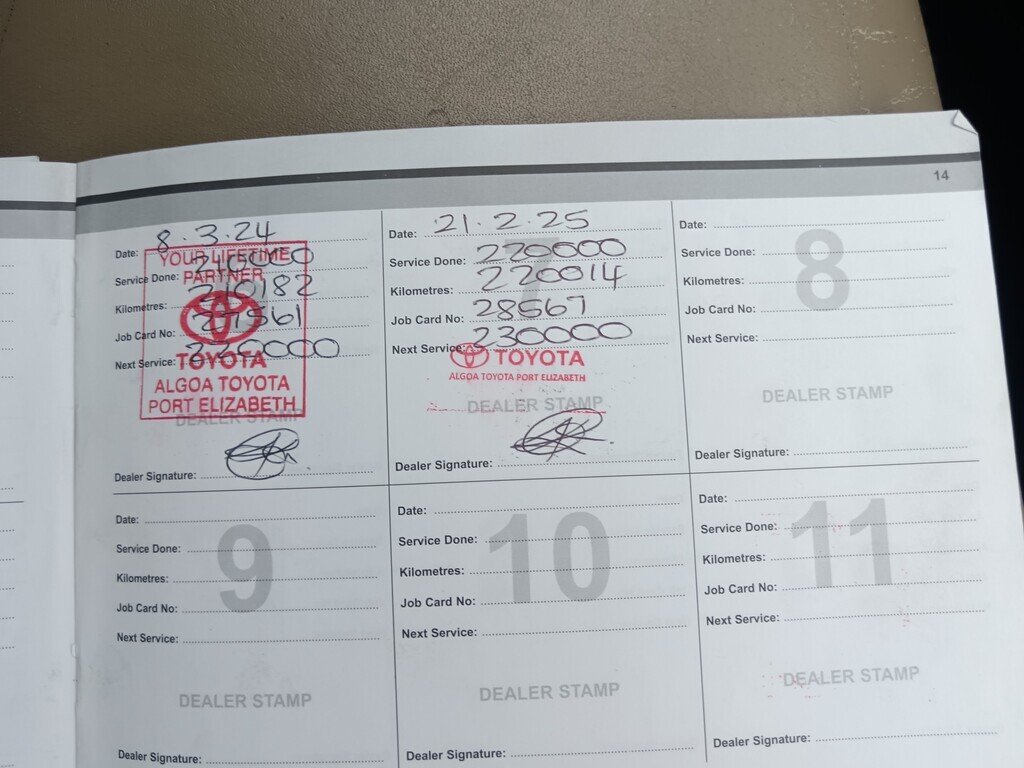 14
Date: 8.3.24
Service Done: 210000
Kilometres: 210182
Job Card No: 27561
Next Service: 220000
YOUR LIFETIME
PARTNER
TOYOTA
ALGOA TOYOTA
PORT ELIZABETH
DEALER STAMP
Dealer Signature:
Date: 21.2.25
Service Done: 220000
Kilometres: 220014
Job Card No: 28567
Next Service: 230000
7
TOYOTA
ALGOA TOYOTA PORT ELIZABETH
DEALER STAMP
Dealer Signature:
8
Date:
Service Done:
Kilometres:
Job Card No:
Next Service:
DEALER STAMP
Dealer Signature:
9
Date:
Service Done:
Kilometres:
Job Card No:
Next Service:
DEALER STAMP
Dealer Signature:
10
Date:
Service Done:
Kilometres:
Job Card No:
Next Service:
DEALER STAMP
Dealer Signature:
11
Date:
Service Done:
Kilometres:
Job Card No:
Next Service:
DEALER STAMP
Dealer Signature: